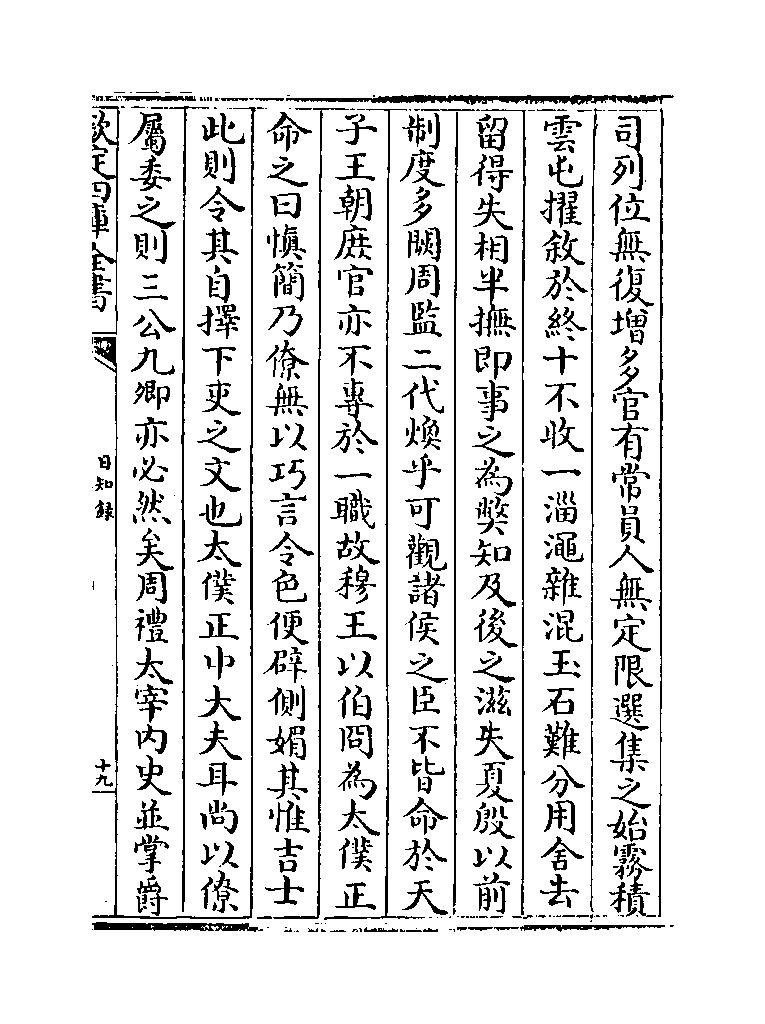 司列位無復増多官有常員人無定限選集之始霧積
雲屯擢敘於終十不收一淄澠雜混玉石難分用舍去
留得失相半撫即事之為獘知及後之滋失夏殷以前
制度多闕周監二代煥乎可觀諸侯之臣不皆命於天
子王朝庶官亦不專於一職故穆王以伯冏為太僕正
命之曰慎簡乃僚無以巧言令色便辟側媚其惟吉士
此則令其自擇下吏之文也太僕正中大夫耳尚以僚
屬委之則三公九卿亦必然矣周禮太宰内史並掌爵
欽定四庫全書
日知錄
十九